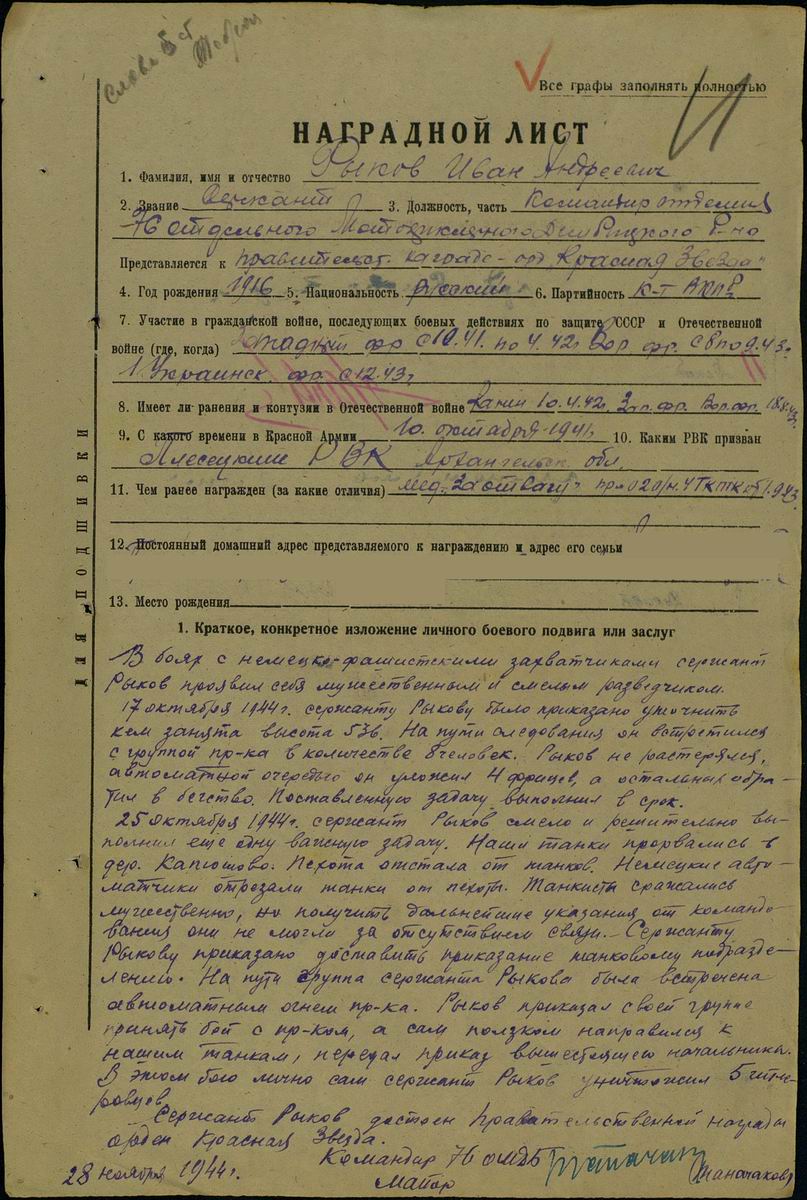 слава 3 ст
Все графы заполнять полностью
НАГРАДНОЙ ЛИСТ
1. Фамилия, имя и отчество Рыков Иван Андреевич
2. Звание Сержант 3. Должность, часть Командир отделения
76 отдельного Мотоциклетного
Представляется к правительст. награде - орд „Красная Звезда"
4. Год рождения 1916 5. Национальность русский 6. Партийность к-т ВКПб
7. Участие в гражданской войне, последующих боевых действиях по защите СССР и Отечественной
войне (где, когда) Западный фр с 10.41. по 4.42г Вор. фр. с 8 по 9.43г
1 Украинск. фр. с 12.43г
8. Имеет ли ранения и контузии в Отечественной войне Ранен 10.4.42г. Зап. фр. Вор. фр. 18.8.43г.
9. С какого времени в Красной Армии 10. октября 1941г. 10. Каким РВК призван
Плесецким РВК Архангельск. обл.
11. Чем ранее награжден (за какие отличия) мед. „За отвагу"
12. Постоянный домашний адрес представляемого к награждению и адрес его семьи
13. Место рождения
ДЛЯ ПОДШИВКИ
1. Краткое, конкретное изложение личного боевого подвига или заслуг
В боях с немецко-фашистскими захватчиками сержант
Рыков проявил себя мужественным и смелым разведчиком.
17 октября 1944г. сержанту Рыкову было приказано уточнить
кем занята высота 536. На пути следования он встретился
с группой пр-ка в количестве 8 человек. Рыков не растерялся,
автоматной очередью он уложил 4 фрицев, а остальных обра-
тил в бегство. Поставленную задачу выполнил в срок.
25 октября 1944г. сержант Рыков смело и решительно вы-
полнил еще одну важную задачу. Наши танки прорвались в
дер. Капишово. Пехота отстала от танков. Немецкие авто-
матчики отрозали танки от пехоты. Танкисты сражались
мужественно, но получить дальнейшие указания от командо-
вания они не могли за отсутствием связи. Сержанту
Рыкову приказано доставить приказание танковому подразде-
лению. На пути группа сержанта Рыкова была встречена
автоматным огнем пр-ка. Рыков приказал своей группе
принять бой с пр-ком, а сам ползком направился к
нашим танкам, передал приказ вышестоящего начальника.
В этом бою лично сам сержант Рыков уничтожил 5 гитле-
ровцев.
Сержант Рыков достоин Правительственной награды
орден Красная Звезда.
Командир 76 омцб
28 ноября 1944г. Майор (Таначаков)